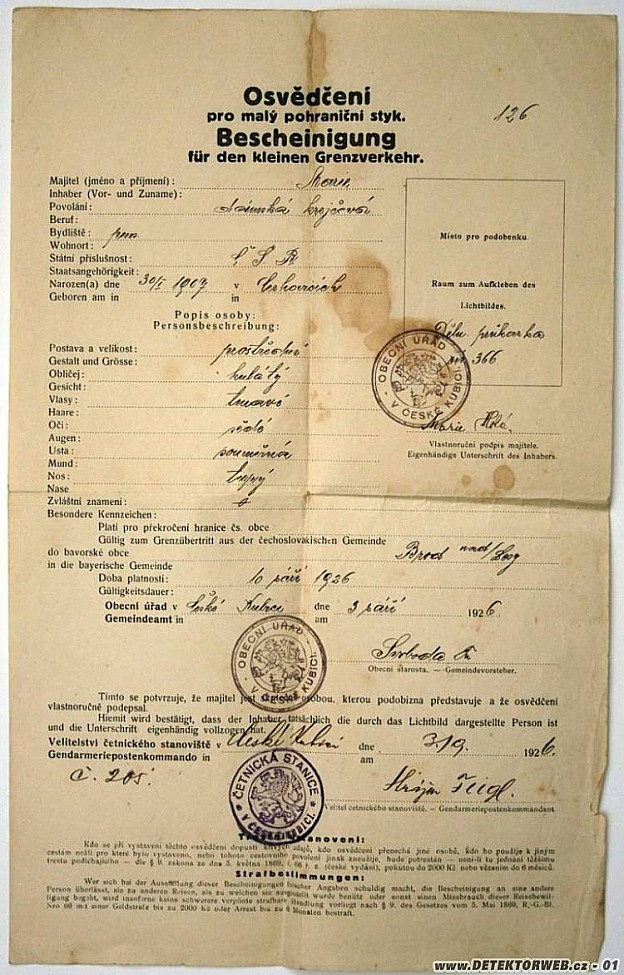 Osvědčení
pro malý pohraniční styk.
126
Bescheinigung
für den kleinen Grenzverkehr.
Majitel (jméno a příjmení): Marie
Inhaber (Vor- und Zuname):
Povolání: krejčová
Beruf:
Bydliště:
Wohnort:
Státní příslušnost: Č S R
Staatsangehörigkeit:
Narozen(a) dne 30/I 1907 v
Geboren am in in
Místo pro podobenku.
Raum zum Aufkleben des
Lichtbildes.
Děln. průkazka
366
Popis osoby:
Personsbeschreibung:
Postava a velikost: prostřední
Gestalt und Grösse:
Obličej: kulatý
Gesicht:
Vlasy: tmavé
Haare:
Oči: šedé
Augen:
Usta: souměrná
Mund:
Nos: tupý
Nase
Zvláštní znamení:
Besondere Kennzeichen:
OBECNÍ ÚŘAD V ČESKÉ KUBICI
Marie
Vlastnoruční podpis majitele.
Eigenhändige Unterschrift des Inhabers.
Platí pro překročení hranice čs. obce
Gültig zum Grenzübertritt aus der čechoslovakischen Gemeinde
do bavorské obce Brod nad/Les
in die bayerische Gemeinde
Doba platnosti: 10 září 1926
Gültigkeitsdauer:
Obecní úřad v České Kubici dne 3 září 1926
Gemeindeamt in am
OBECNÍ ÚŘAD V ČESKÉ KUBICI
Svoboda
Obecní starosta. — Gemeindevorsteher.
Tímto se potvrzuje, že majitel jest osobou, kterou podobizna představuje a že osvědčení
vlastnoručně podepsal.
Hiemit wird bestätigt, dass der Inhaber tatsächlich die durch das Lichtbild dargestellte Person ist
und die Unterschrift eigenhändig vollzogen hat.
Velitelství četnického stanoviště v České Kubici dne 3/9. 1926.
Gendarmeriepostenkommando in am
Č. 205
ČETNICKÁ STANICE V ČESKÉ KUBICI.
Feigl.
Velitel četnického stanoviště. — Gendarmeriepostenkommandant
Trestní ustanovení:
Kdo se při vystavení těchto osvědčení dopustí údajů, kdo osvědčení přenechá jiné osobě, kdo ho použije k jiným
cestám nežli pro které bylo vystaveno, nebo tohoto cestovního povolení jinak zneužije, bude potrestán — není-li tu jednání těžšímu
trestu podléhajícího — dle § 9. zákona ze dne 5. května 1869, ř. z. (české vydání), pokutou do 2000 Kč nebo vězením do 6 měsíců.
Strafbestimmungen:
Wer sich bei der Ausstellung dieser Bescheinigungen falscher Angaben schuldig macht, die Bescheinigung an eine andere
Person überlässt, sie zu anderen Reisen, als zu welchen sie ausgestellt wurde benütz oder sonst einen Missbrauch dieser Reisebewil-
ligung begiht, wird insoferne keine schwerere verpönte strafbare Handlung vorliegt nach § 9. des Gesetzes vom 5. Mai 1869, R.-G.-Bl.
Nro 66 mit einer Geldstrafe bis zu 2000 Kč oder Arrest bis zu 6 Monaten bestraft.
www.DETEKTORWEB.cz - 01